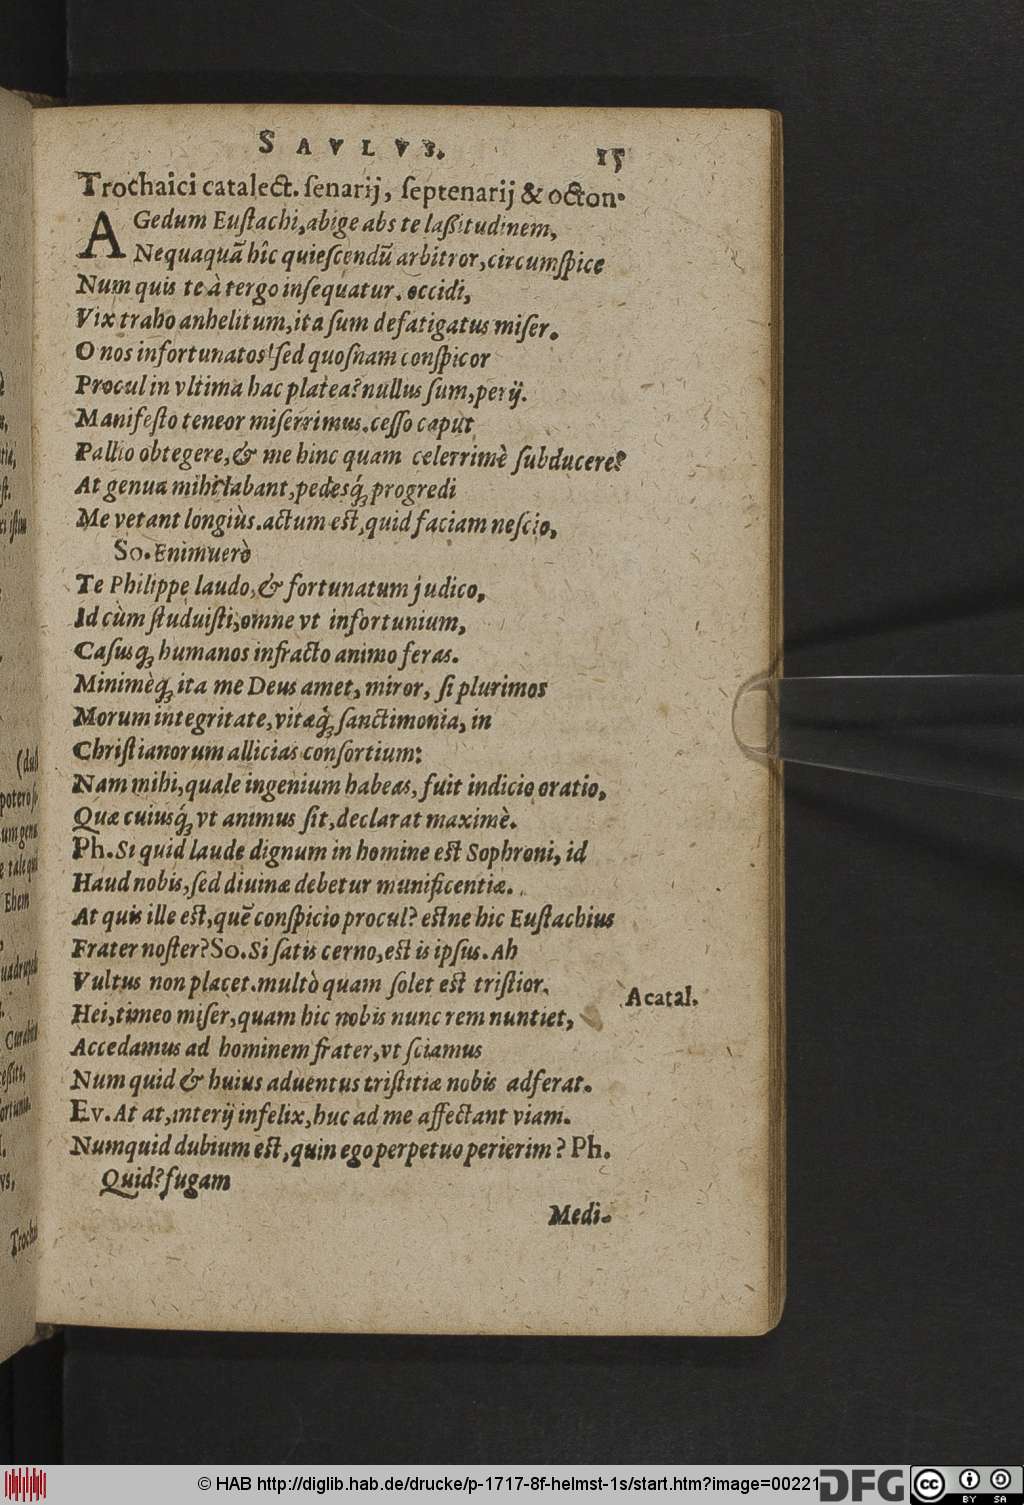 SAVLVS. 15
Trochaici catalect. ſenarij, ſeptenarij & octon.
AGedum Euſtachi, abige abs te laßitudinem,
Nequaquã hîc quieſcendũ arbitror, circumſpice
Num quis te à tergo inſequatur. occidi,
Vix traho anhelitum, ita ſum defatigatus miſer.
O nos infortunatos! ſed quoſnam conſpicor
Procul in vltima hac platea? nullus ſum, perij.
Manifeſto teneor miſerrimus. ceſſo caput
Pallio obtegere, & me hinc quam celerrimè ſubducere?
At genua mihi labant, pedesq́ꝫ progredi
Me vetant longiùs. actum eſt, quid faciam neſcio,
So. Enimuerò
Te Philippe laudo, & fortunatum judico,
Id cùm ſtuduiſti, omne vt infortunium,
Caſusqꝫ humanos infracto animo feras.
Minimèqꝫ ita me Deus amet, miror, ſi plurimos
Morum integritate, vitæq́ꝫ ſanctimonia, in
Chriſtianorum allicias conſortium:
Nam mihi, quale ingenium habeas, fuit indicio oratio,
Quæ cuiusq́ꝫ vt animus ſit, declarat maximè.
Ph. Si quid laude dignum in homine eſt Sophroni, id
Haud nobis, ſed diuinæ debetur munificentiæ.
At quis ille eſt, quẽ conſpicio procul? eſtne hic Euſtachius
Frater noſter? So. Si ſatis cerno, eſt is ipſus. Ah
Vultus non placet. multò quam ſolet eſt triſtior.
Acatal.
Hei, timeo miſer, quam hic nobis nunc rem nuntiet,
Accedamus ad hominem frater, vt ſciamus
Num quid & huius aduentus triſtitiæ nobis adferat.
Ev. At at, interij infelix, huc ad me affectant viam.
Numquid dubium eſt, quin ego perpetuo perierim? Ph.
Quid? fugam
Medi-
(dul
potero
um gen
e tale qui
Ehem
Curabi
Troch
© HAB http://diglib.hab.de/drucke/p-1717-8f-helmst-1s/start.htm?image=00221
DFG
cc
BY SA